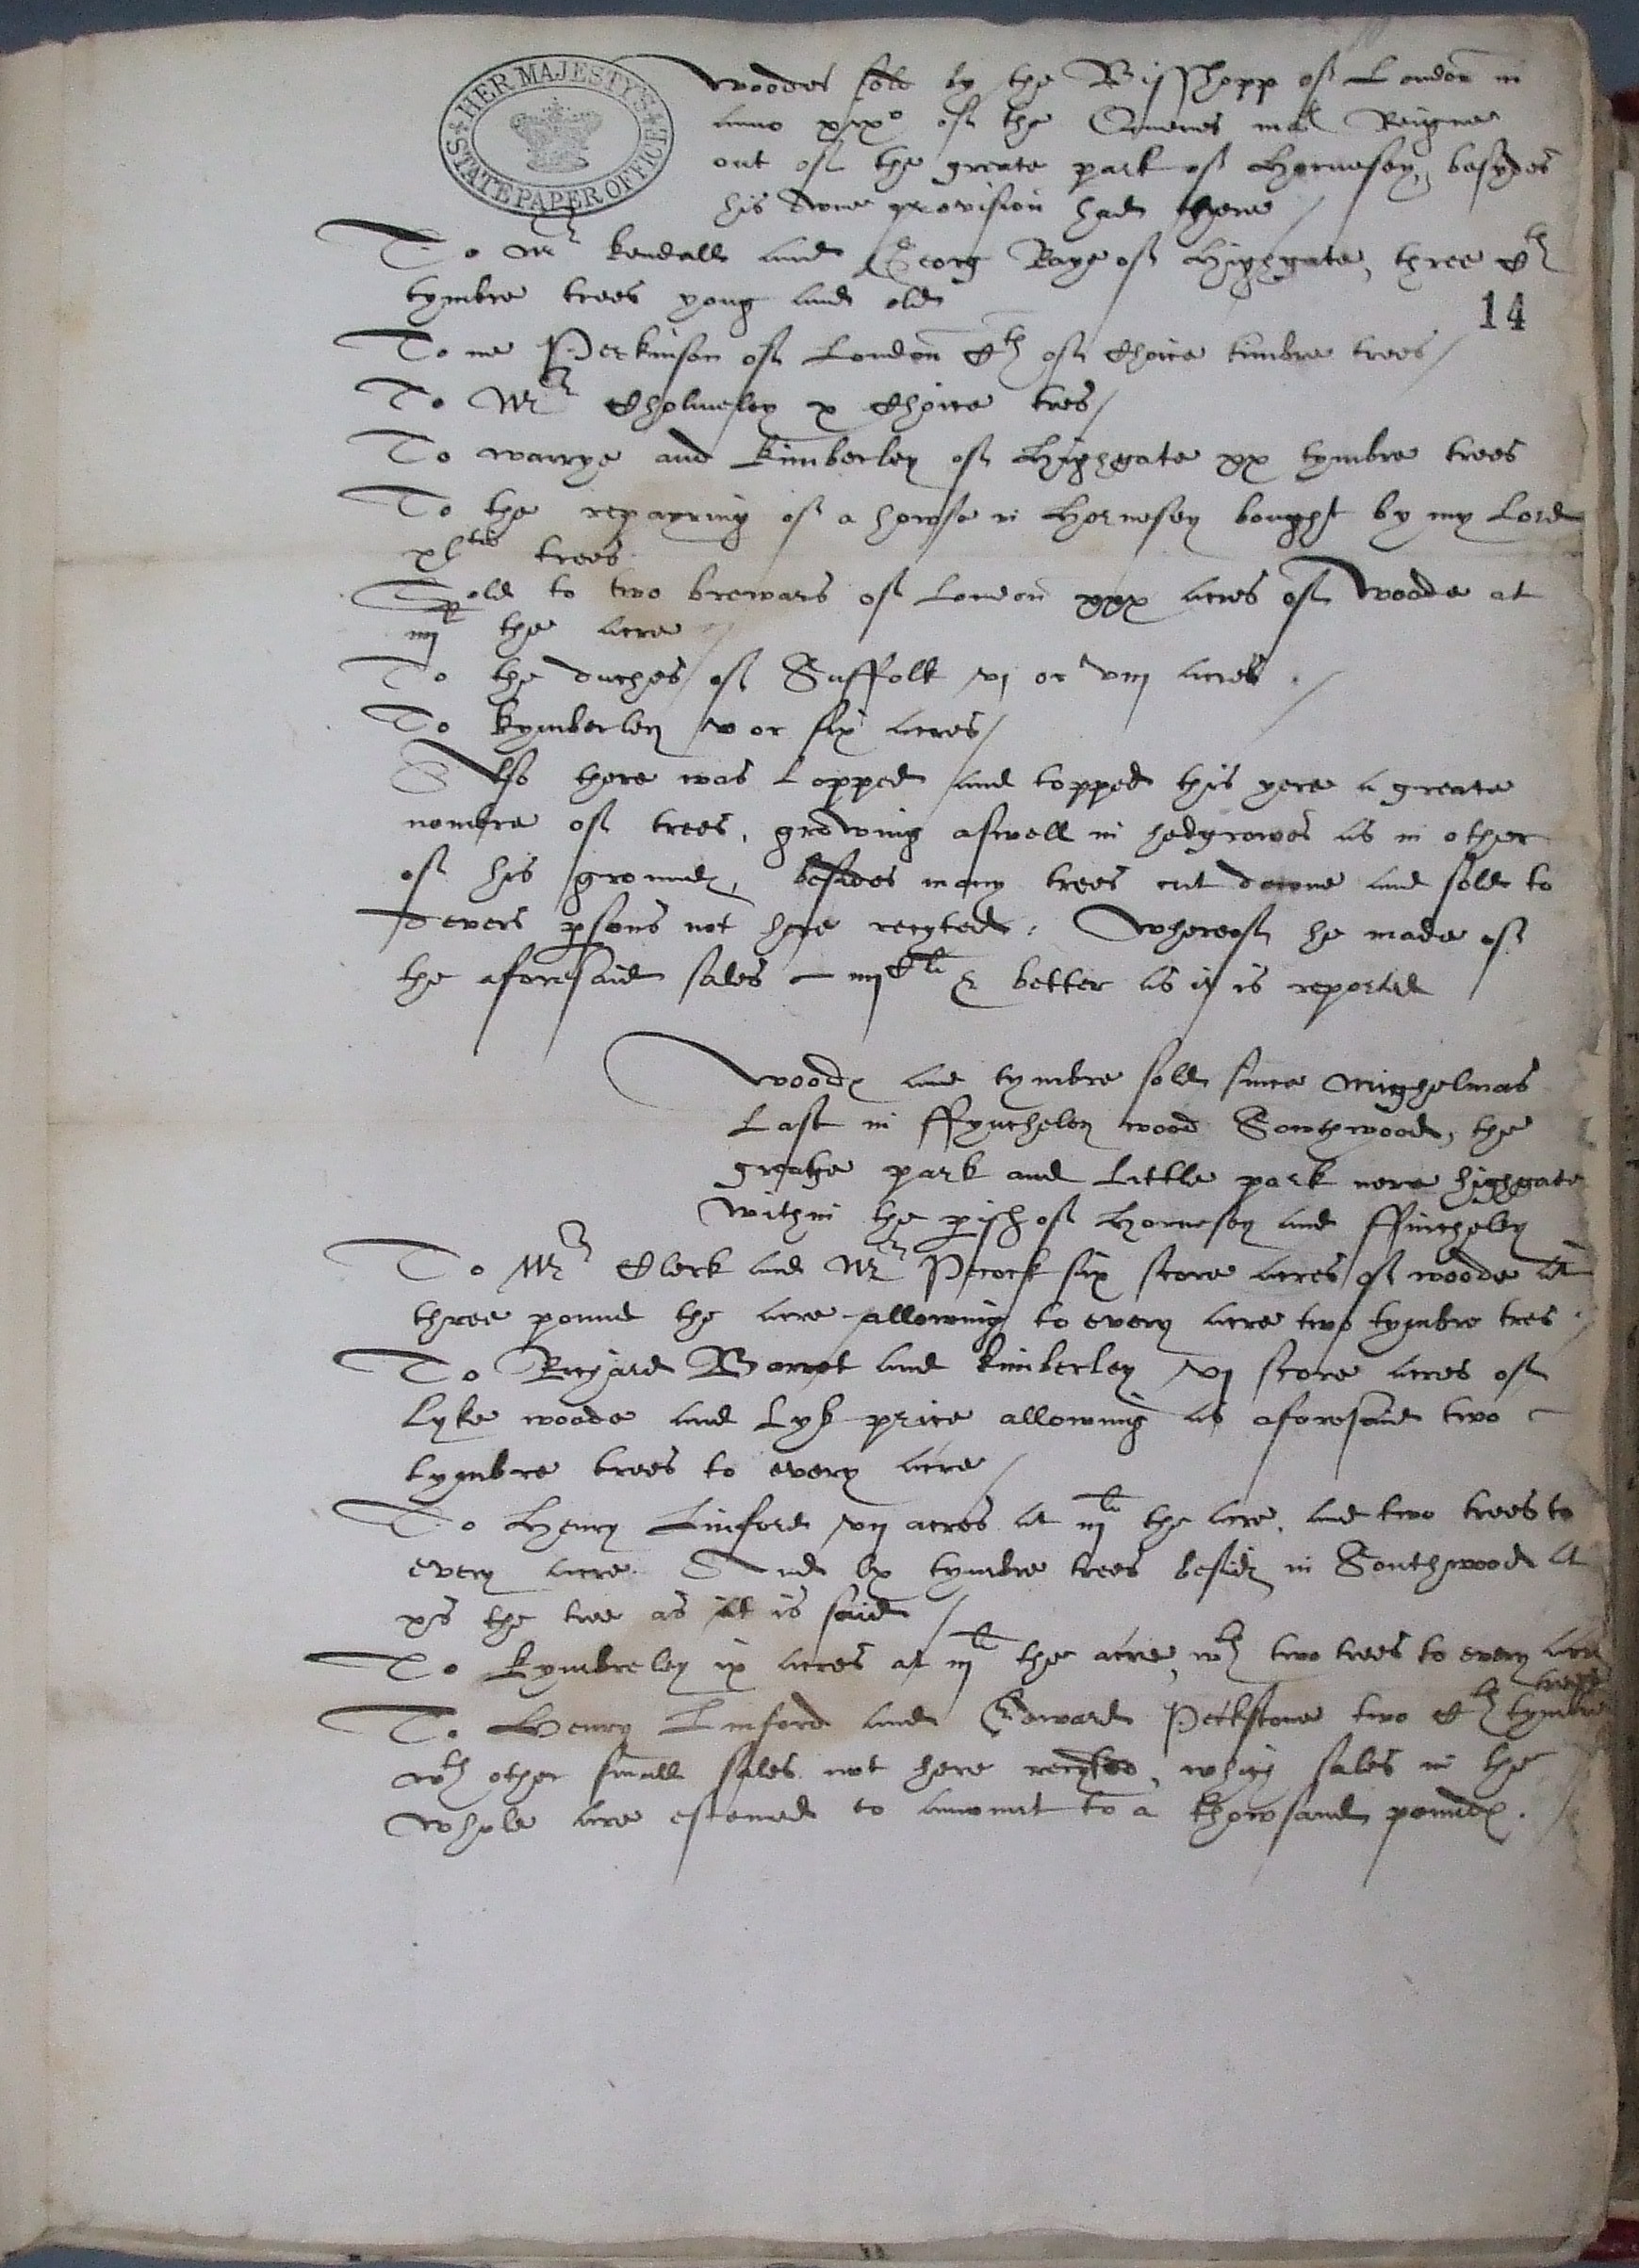 HER MAJESTY'S STATE PAPER OFFICE
woodes sold by the Bisshopp of London in
anno xixo of the Quenes mats Reigne
out of the greate park of Hornesey, besydes
his owne provision had there
To Mr kendall and Georg Raye of Highgate, three Cth
tymbre trees yong and old
14
To me Perkinson of London Cth of choice timbre trees
To Mr Cholmeley x choice tres
To warrye and kimberley of Highgate xx tymbre trees
To the repayring of a howse in Hornesey bought by my Lord
xltie trees
Sold to two brewars of London xxx acres of woode at
iiijli the acre
To the duches of Suffolk vj or viij acres.
To kymberley v or six acres
Also there was Lopped and topped this yere a greate
nombre of trees, growing aswell in hedgrowes as in other
of his groundes, besides many trees cut downe and sold to
devers psons not here recyted. Whereof he made of
the aforesaid sales iiijCli & better as it is reported
woodes and tymbre sold since Mighelmas
Last in ffyncheley wood Sowthwood, the
greate park and Little park nere highgate
within the pish of Hornesey and ffincheley
To Mr Clerk and Mr Pecock six score acres of woode at
three pound the acre allowing to every acre two tymbre tres
To Rychard Barret and kimberley vj score acres of
Lyke woode and Lyk price allowing as aforesaid two
tymbre trees to every acre
To Henry Linford vij acres at iijli the acre, and two trees to
every acre. And lx tymbre trees besides in Southwood at
xs the tree as it is said
To kymbreley ix acres at iijli the acre, wth two trees to every acre
To Henry Linford and Edward Peckstone two Cth tymbre trees
wth other small sales not here recyted, which sales in the
whole are estemed to amount to a thowsand poundes.